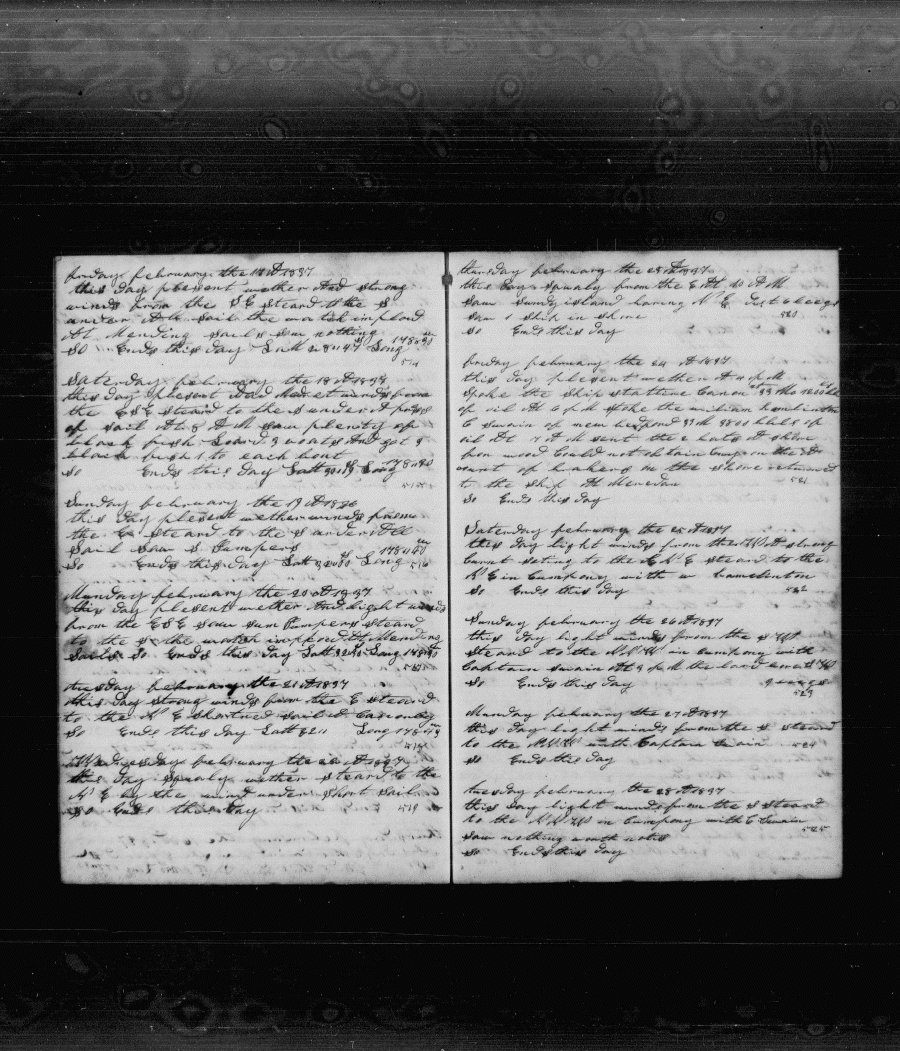 friday february the 17th 1837
this day plesent wether And strong
winds from the S E steard to the S
under All sail the watch imploid
At Mending sails saw nothing
So Ends this day Latt 28"47 Long 178"30
514
Saterday february the 18th 1837
this day plesent And Modret winds from
the E S E steard to the S under A press
of sail At 8 A M saw plenty of
black fish Loard 3 boats And got 3
black fish 1 to each boat
So Ends this day Latt Long 178"30
515
Sunday february the 19th
this day plesent wether winds from
the E steard to the S under All
sail saw S Sumpers
So Ends this day Latt Long 178"
516
Munday february the 20th 1837
this day plesent wether And light winds
from the E S E saw sum steard
to the S the watch imploid At Mending
Sails So Ends this day Latt Long 178"
517
tuesday february the 21th 1837
this day strong winds from the E steard
to the N E shortned sail
So Ends this day Latt 32 11 Long 178
518
Wednesday february the 22th 1837
this day squaly wether steard to the
N E by the wind under short sail
So Ends this day 519
thursday february the 23th 1837
this day squaly from the E At 10 A M
saw Sundy island baring N E Dist 6 leegs
saw 1 ship in shore 520
So Ends this day
friday february the 24th 1837
this day plesent wether At 4 p M
Spoke the ship
of oil At 6 p M spoke the william hamilinton
C swain of new Mo 3800 bbls of
oil At A M sent the 2 bots At shore
for wood Could not obtain
count of brakers on the shore returned
to the ship At Meredian 521
So Ends this day
Saterday february the 25th 1837
this day light winds from the W A strong
Curnt seting to the N E steard to the
N E in Cumpony with w hamelinton
So Ends this day 522
Sunday february the 26th 1837
this day light winds from the S W
steard to the N N W in Cumpony with
Captain swain At 3 p M the land
So Ends this day
523
Munday february the 27th 1837
this day light winds from the S steard
to the N N W with Captain Swain 524
So Ends this day
tuesday february the 28th 1837
this day light winds from the S steard
to the N N W in Cumpony with C Swain
saw nothing worth note 525
So Ends this day